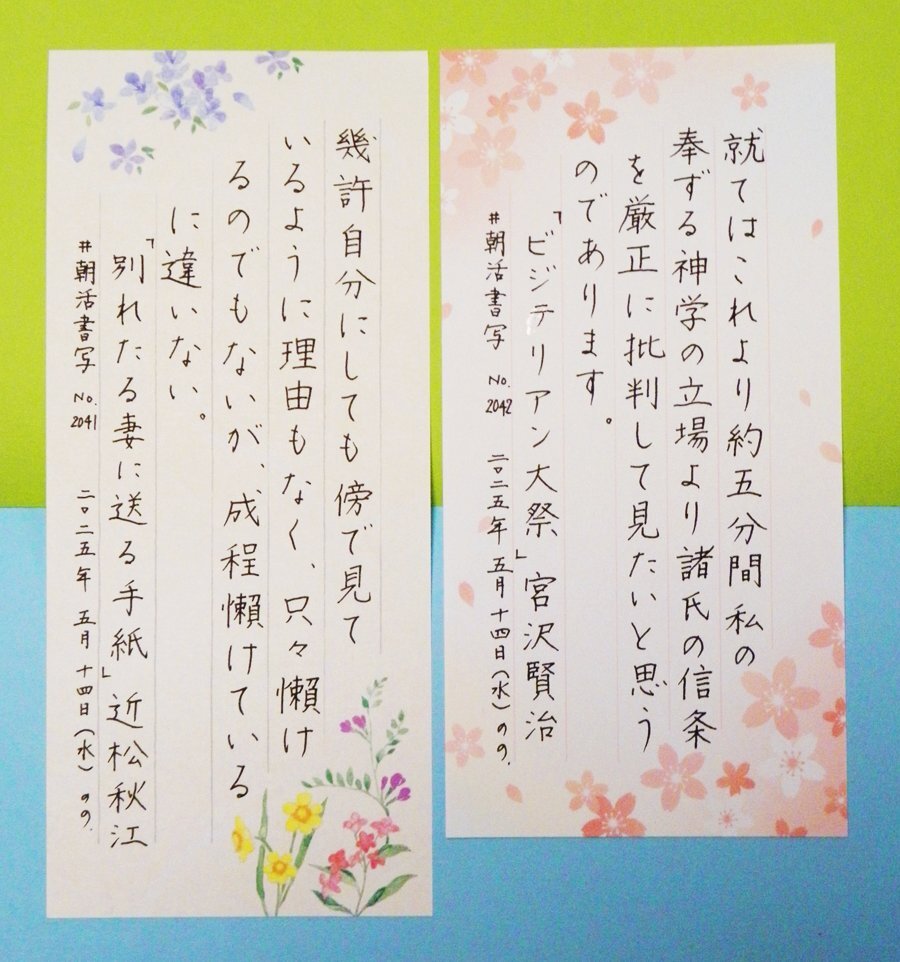 就てはこれより約五分間私の
奉ずる神学の立場より諸氏の信条
を厳正に批判して見たいと思う
のであります。
「ビジテリアン大祭」宮沢賢治
#朝活書写 No.2042 二〇二五年五月十四日(水)のの.
幾許自分にしても傍で見て
いるように理由もなく、只々懶け
るのでもないが、成程懶けている
に違いない。
「別れたる妻に送る手紙」近松秋江
#朝活書写 No.2041 二〇二五年五月十四日(水)のの.